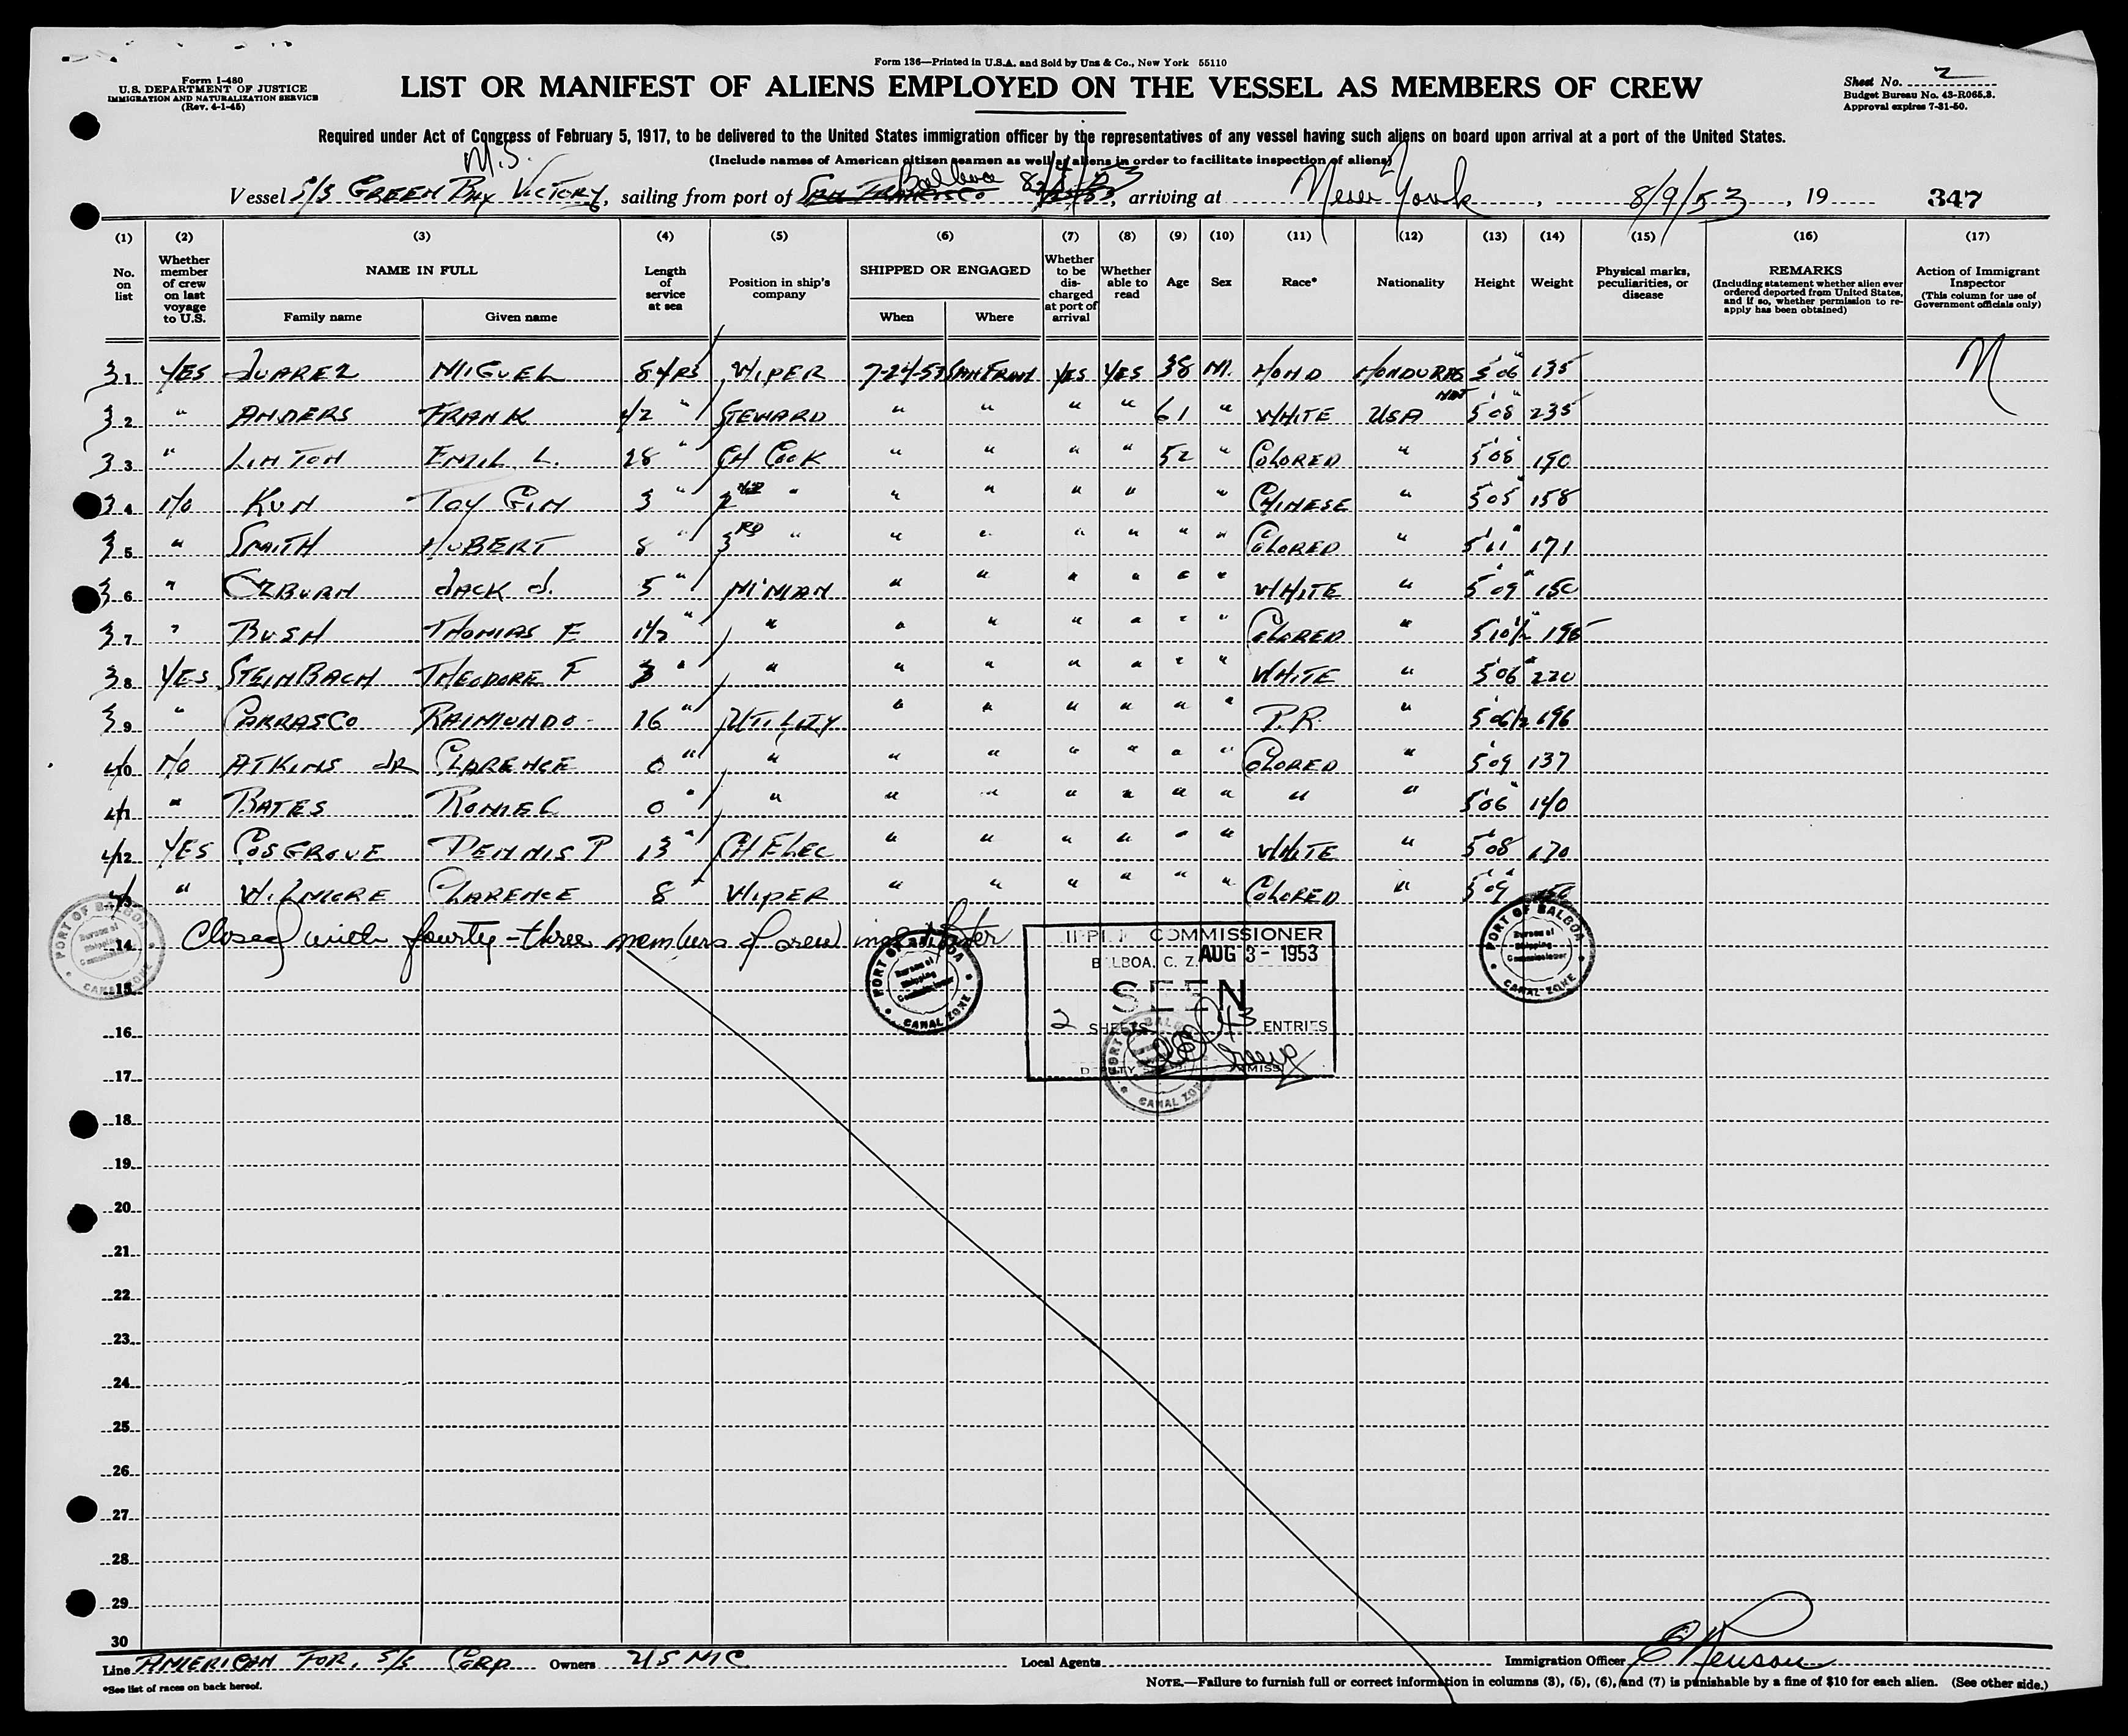 Form 136—Printed in U.S.A. and Sold by Unz & Co., New York 55110
Form I-480
U.S. DEPARTMENT OF JUSTICE
IMMIGRATION AND NATURALIZATION SERVICE
(Rev. 4-1-45)
LIST OR MANIFEST OF ALIENS EMPLOYED ON THE VESSEL AS MEMBERS OF CREW
Sheet No. 2
Budget Bureau No. 43-R065.3.
Approval expires 7-31-50.
Required under Act of Congress of February 5, 1917, to be delivered to the United States immigration officer by the representatives of any vessel having such aliens on board upon arrival at a port of the United States.
(Include names of American citizen seamen as well as aliens in order to facilitate inspection of aliens)
M.S. Balboa
Vessel S/S GREEN BAY VICTORY, sailing from port of SAN FRANCISCO, arriving at New York, 8/9/53, 19 347
(1) (2) (3) (4) (5) (6) (7) (8) (9) (10) (11) (12) (13) (14) (15) (16) (17)
No. on list
Whether member of crew on last voyage to U.S.
NAME IN FULL
Family name Given name
Length of service at sea
Position in ship's company
SHIPPED OR ENGAGED
When Where
Whether to be discharged at port of arrival
Whether able to read
Age
Sex
Race*
Nationality
Height
Weight
Physical marks, peculiarities, or disease
REMARKS
(Including statement whether alien ever ordered deported from United States, and if so, whether permission to reapply has been obtained)
Action of Immigrant Inspector
(This column for use of Government officials only)
31 YES JUAREZ MIGUEL 8 YRS WIPER 7-24-53 SAN FRAN YES YES 38 M. HOND HONDURAS 5'06" 135 M
32 " ANDERS FRANK 42 " STEWARD " " " " 61 " WHITE USA 5'08" 235
33 " LINTON EMIL L. 28 " CH COOK " " " " 52 " COLORED " 5'08" 190
34 NO KUN TOY GIN 3 " 2ND " " " " " " CHINESE " 5'05" 158
35 " SMITH HUBERT 8 " 3RD " " " " " " " COLORED " 5'11" 171
36 " OZBURN JACK J. 5 " M'MAN " " " " " " WHITE " 5'09" 150
37 " BUSH THOMAS E 1½ " " " " " " " " COLORED " 5'10½" 195
38 YES STEINBACH THEODORE F 3 " " " " " " " " WHITE " 5'06" 220
39 " CARRASCO RAIMUNDO 16 " UTILITY " " " " " " P.R. " 5'06½ 196
40 NO ATKINS JR CLARENCE 0 " " " " " " " " COLORED " 5'09 137
41 " BATES ROMIEL 0 " " " " " " " " " " 5'06" 140
42 YES COSGROVE DENNIS P 13 " CH ELEC " " " " " " WHITE " 5'08" 170
43 " WILMORE CLARENCE 8 " WIPER " " " " " " COLORED " 5'09"
14 Closed with fourty-three members of crew incl. Master
PORT OF BALBOA
Bureau of Shipping Commissioner
CANAL ZONE
PORT OF BALBOA
Bureau of Shipping Commissioner
CANAL ZONE
PORT OF BALBOA
Bureau of Shipping Commissioner
CANAL ZONE
COMMISSIONER
BALBOA, C. Z. AUG 3 - 1953
SEEN
2 SHEETS 43 ENTRIES
DEPUTY
CANAL ZONE
15
16
17
18
19
20
21
22
23
24
25
26
27
28
29
30
Line AMERICAN FOR. S/S CORP Owners USMC Local Agents Immigration Officer
*See list of races on back hereof.
NOTE.—Failure to furnish full or correct information in columns (3), (5), (6), and (7) is punishable by a fine of $10 for each alien. (See other side.)